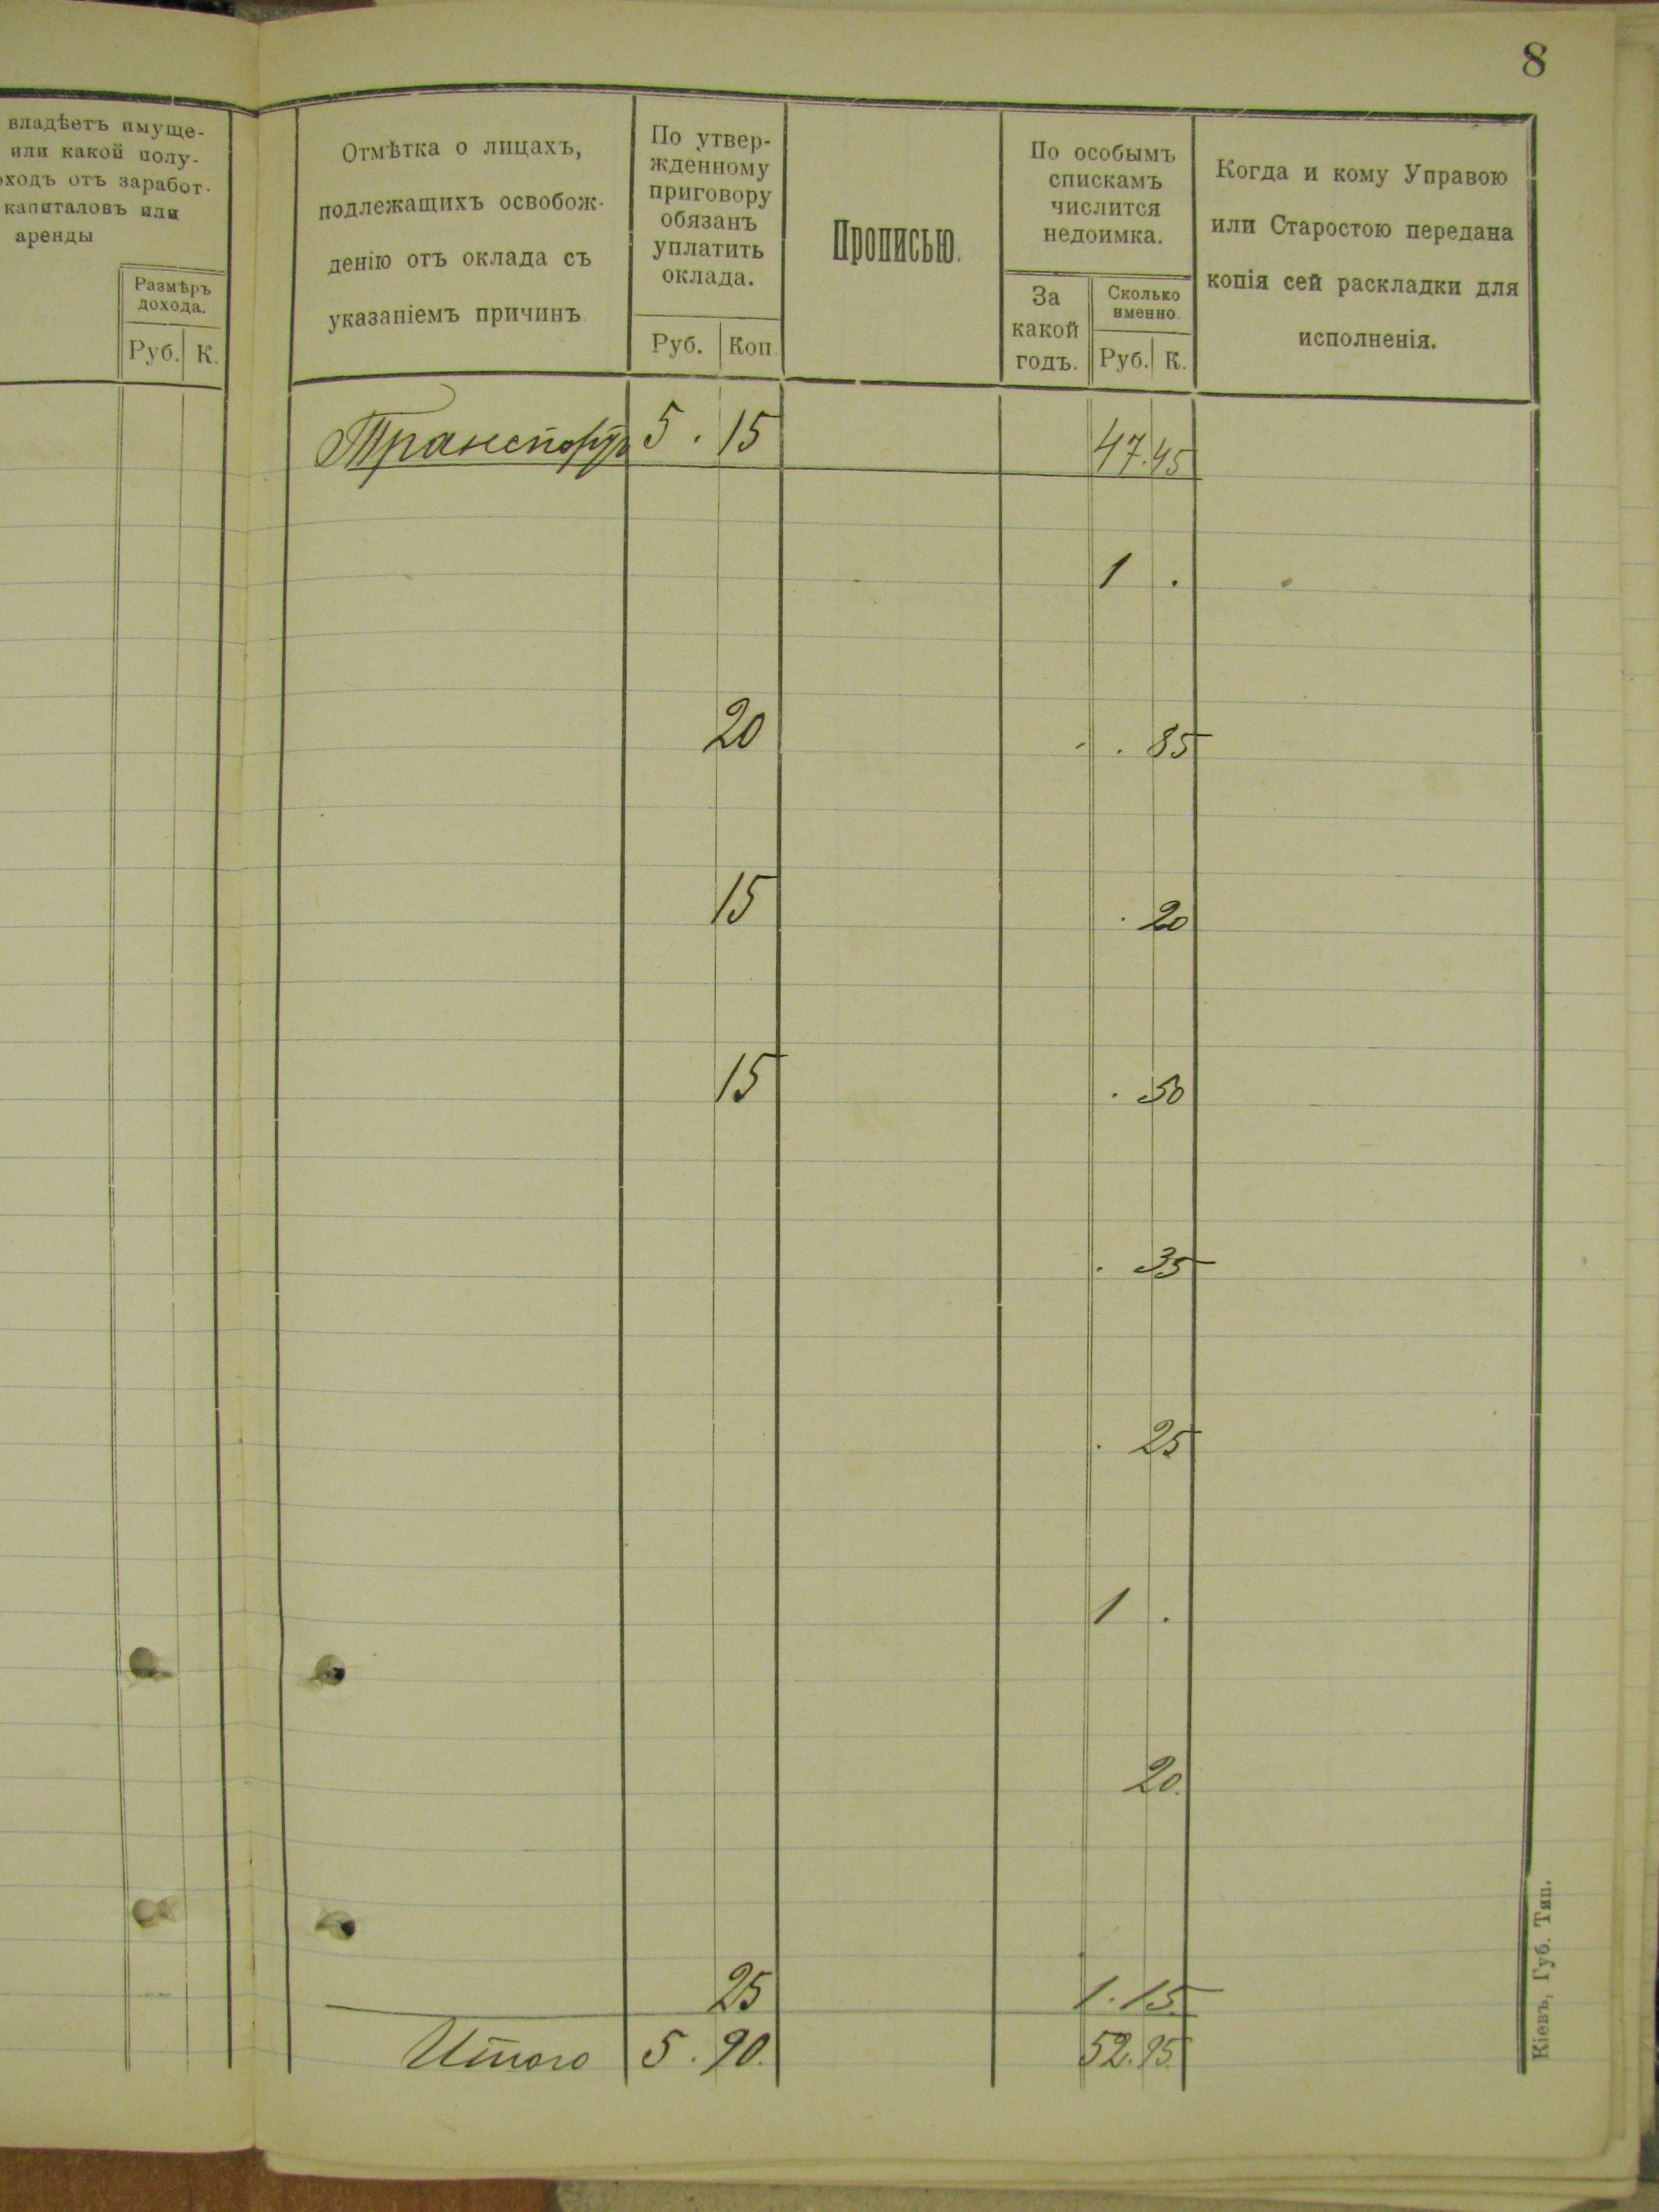 8
владѣетъ имуще-
или какой полу-
оходъ отъ заработ-
капиталовъ или
аренды
Размѣръ
дохода.
Руб. К.
Отмѣтка о лицахъ,
подлежащихъ освобож-
денію отъ оклада съ
указаніемъ причинъ.
По утвер-
жденному
приговору
обязанъ
уплатить
оклада.
Руб. Коп.
Прописью.
По особымъ
спискамъ
числится
недоимка.
За
какой
годъ.
Сколько
именно.
Руб. К.
Когда и кому Управою
или Старостою передана
копія сей раскладки для
исполненія.
Транспортъ 5 . 15 47.45
1 .
20 . 85
15 . 20
15 . 50
. 35
. 25
1 .
20.
25 1.15
Итого 5 . 90. 52.95
Кіевъ, Губ. Тип.